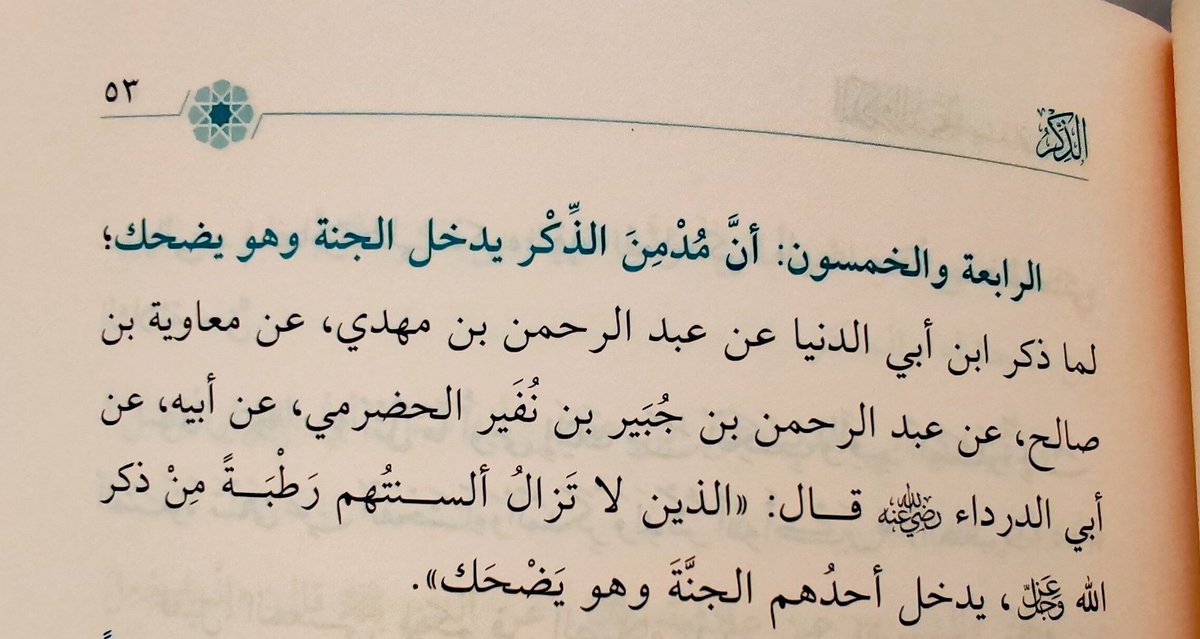 الذِّكْرُ
٥٣
الرابعة والخمسون: أنَّ مُدْمِنَ الذِّكْر يدخل الجنة وهو يضحك؛
لما ذكر ابن أبي الدنيا عن عبد الرحمن بن مهدي، عن معاوية بن
صالح، عن عبد الرحمن بن جُبَير بن نُفَير الحضرمي، عن أبيه، عن
أبي الدرداء رضي الله عنه قال: «الذين لا تَزالُ ألسنتُهم رَطْبَةً مِنْ ذكر
الله عز وجل، يدخل أحدُهم الجنَّةَ وهو يَضْحَك».